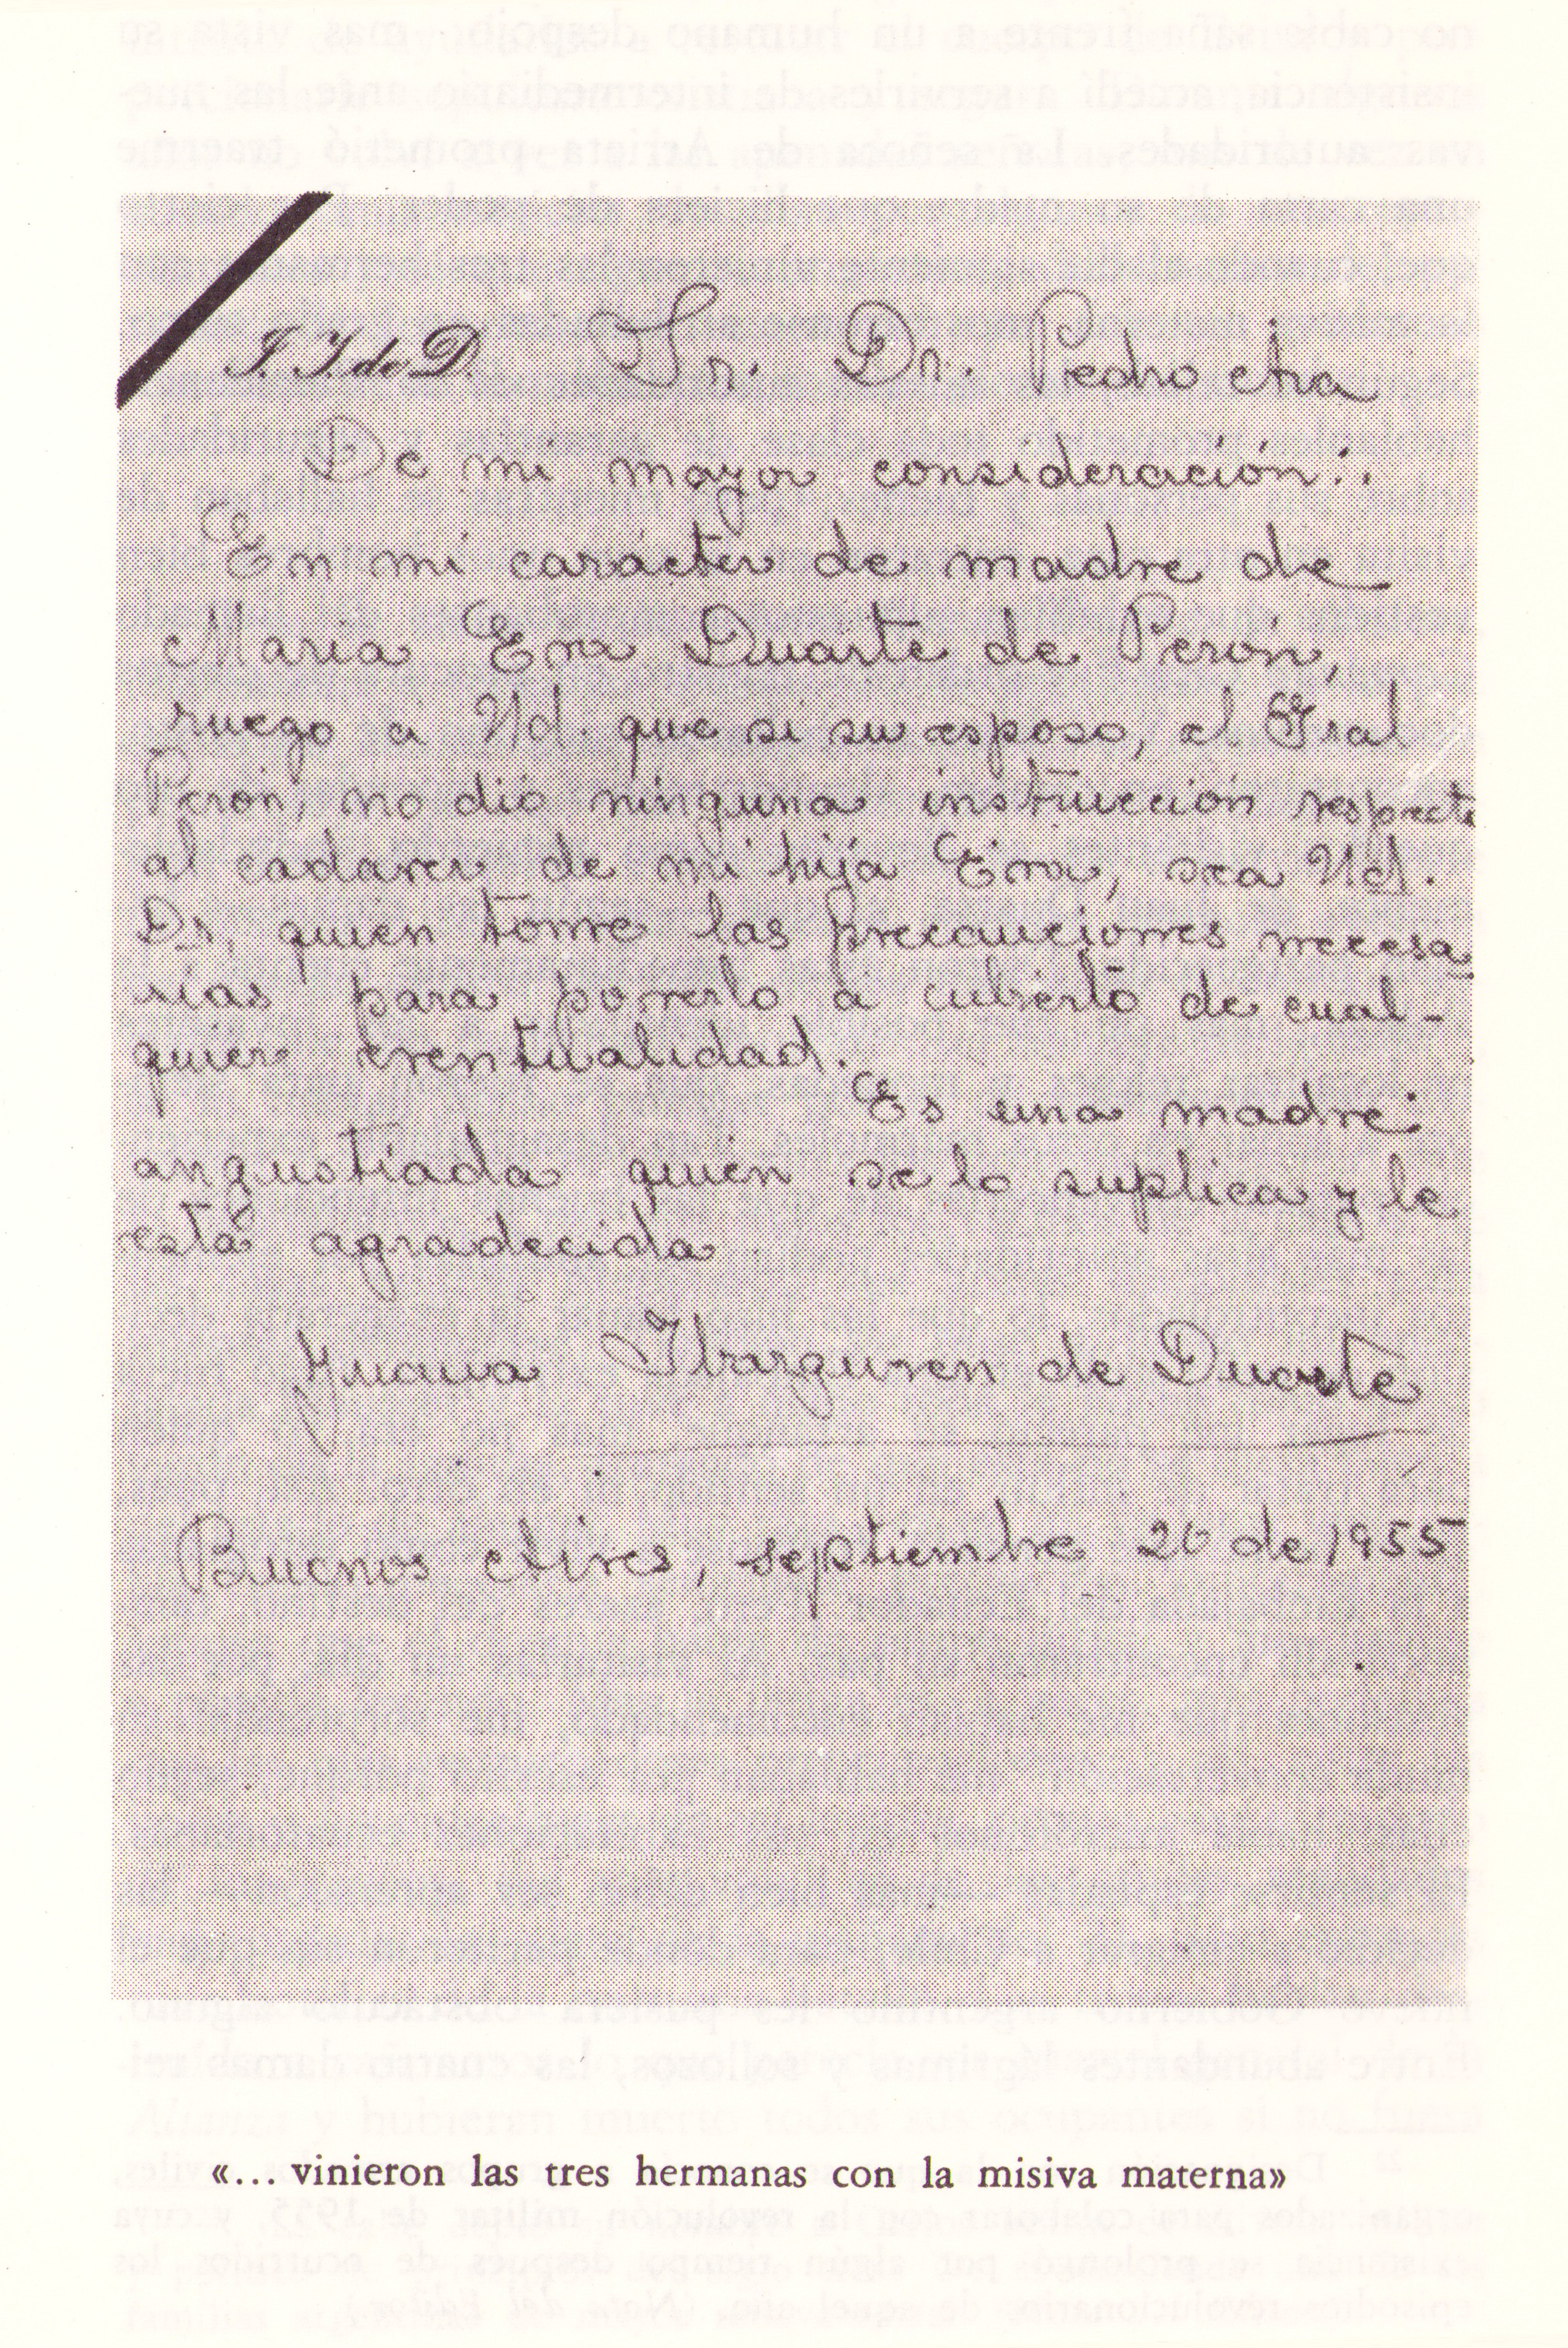 J. I. de D.
Sr. Dr. Pedro Ara
De mi mayor consideración:
En mi carácter de madre de
María Eva Duarte de Perón,
ruego a Ud. que si su esposo, el Gral
Perón, no dió ninguna instrucción respecto
al cadaver de mi hija Eva, sea Ud.
Dr, quien tome las precauciones necesa
rias para ponerlo a cubierto de cual-
quier eventualidad.
Es una madre
angustiada quien se lo suplica y le
está agradecida
Juana Ibarguren de Duarte
Buenos Aires, septiembre 20 de 1955
«... vinieron las tres hermanas con la misiva materna»